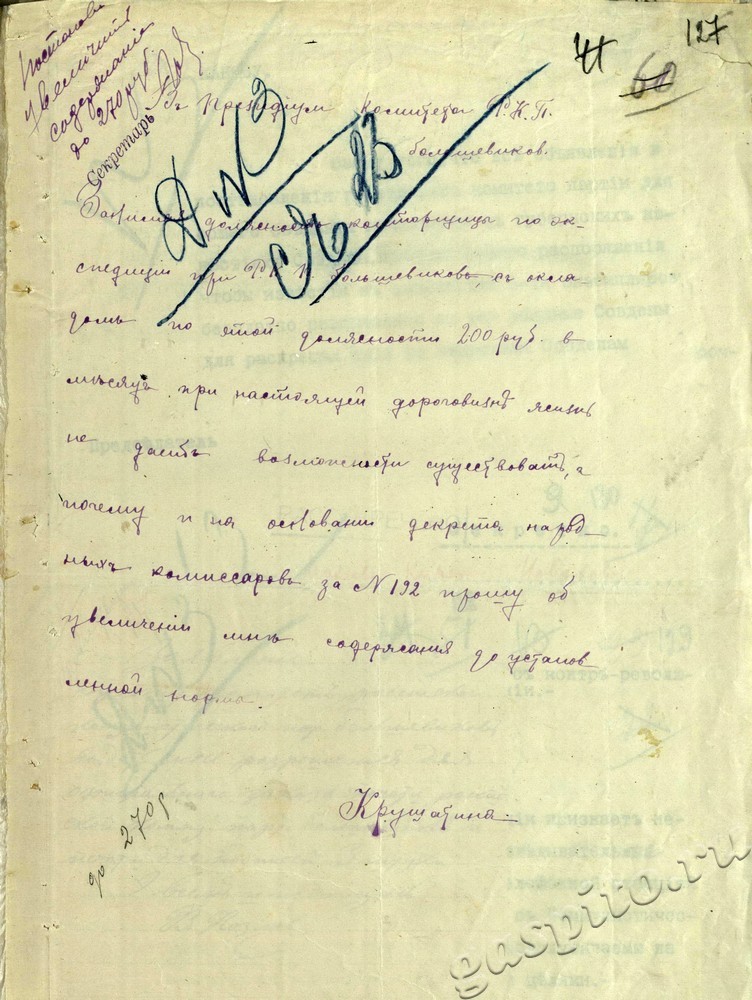 127
41
60
увеличить
содержание
до 270 руб
Секретарь
Въ Президіум Комитета Р.К.П.
большевиков.
Д № 3
св 23
Занимая должность конторщицы по эк-
спедиціи при Р.К.П. большевиковъ, съ окла-
домъ по этой должности 200 руб. в
мѣсяцъ при настоящей дороговизнѣ жизнь
не даетъ возможности существовать, а
почему и на основаніи декрета народ
ныхъ комиссаровъ за № 192 прошу об
увеличеніи мнѣ содержания до установ
ленной норма.
Крушатина
до 270 р
gaspito.ru